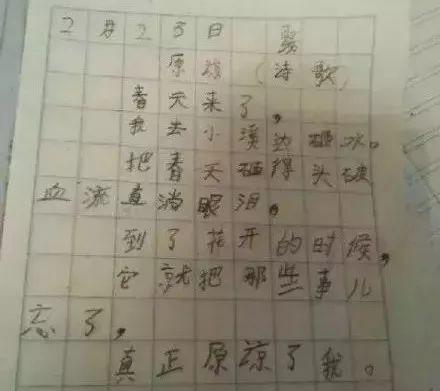 2月25日
原谅(诗歌)
春天来了,
我去小溪边砸冰。
把春天砸得头破
血流直淌眼泪。
到了花开的时候,
它就把那些事儿
忘了,
真正原谅了我。